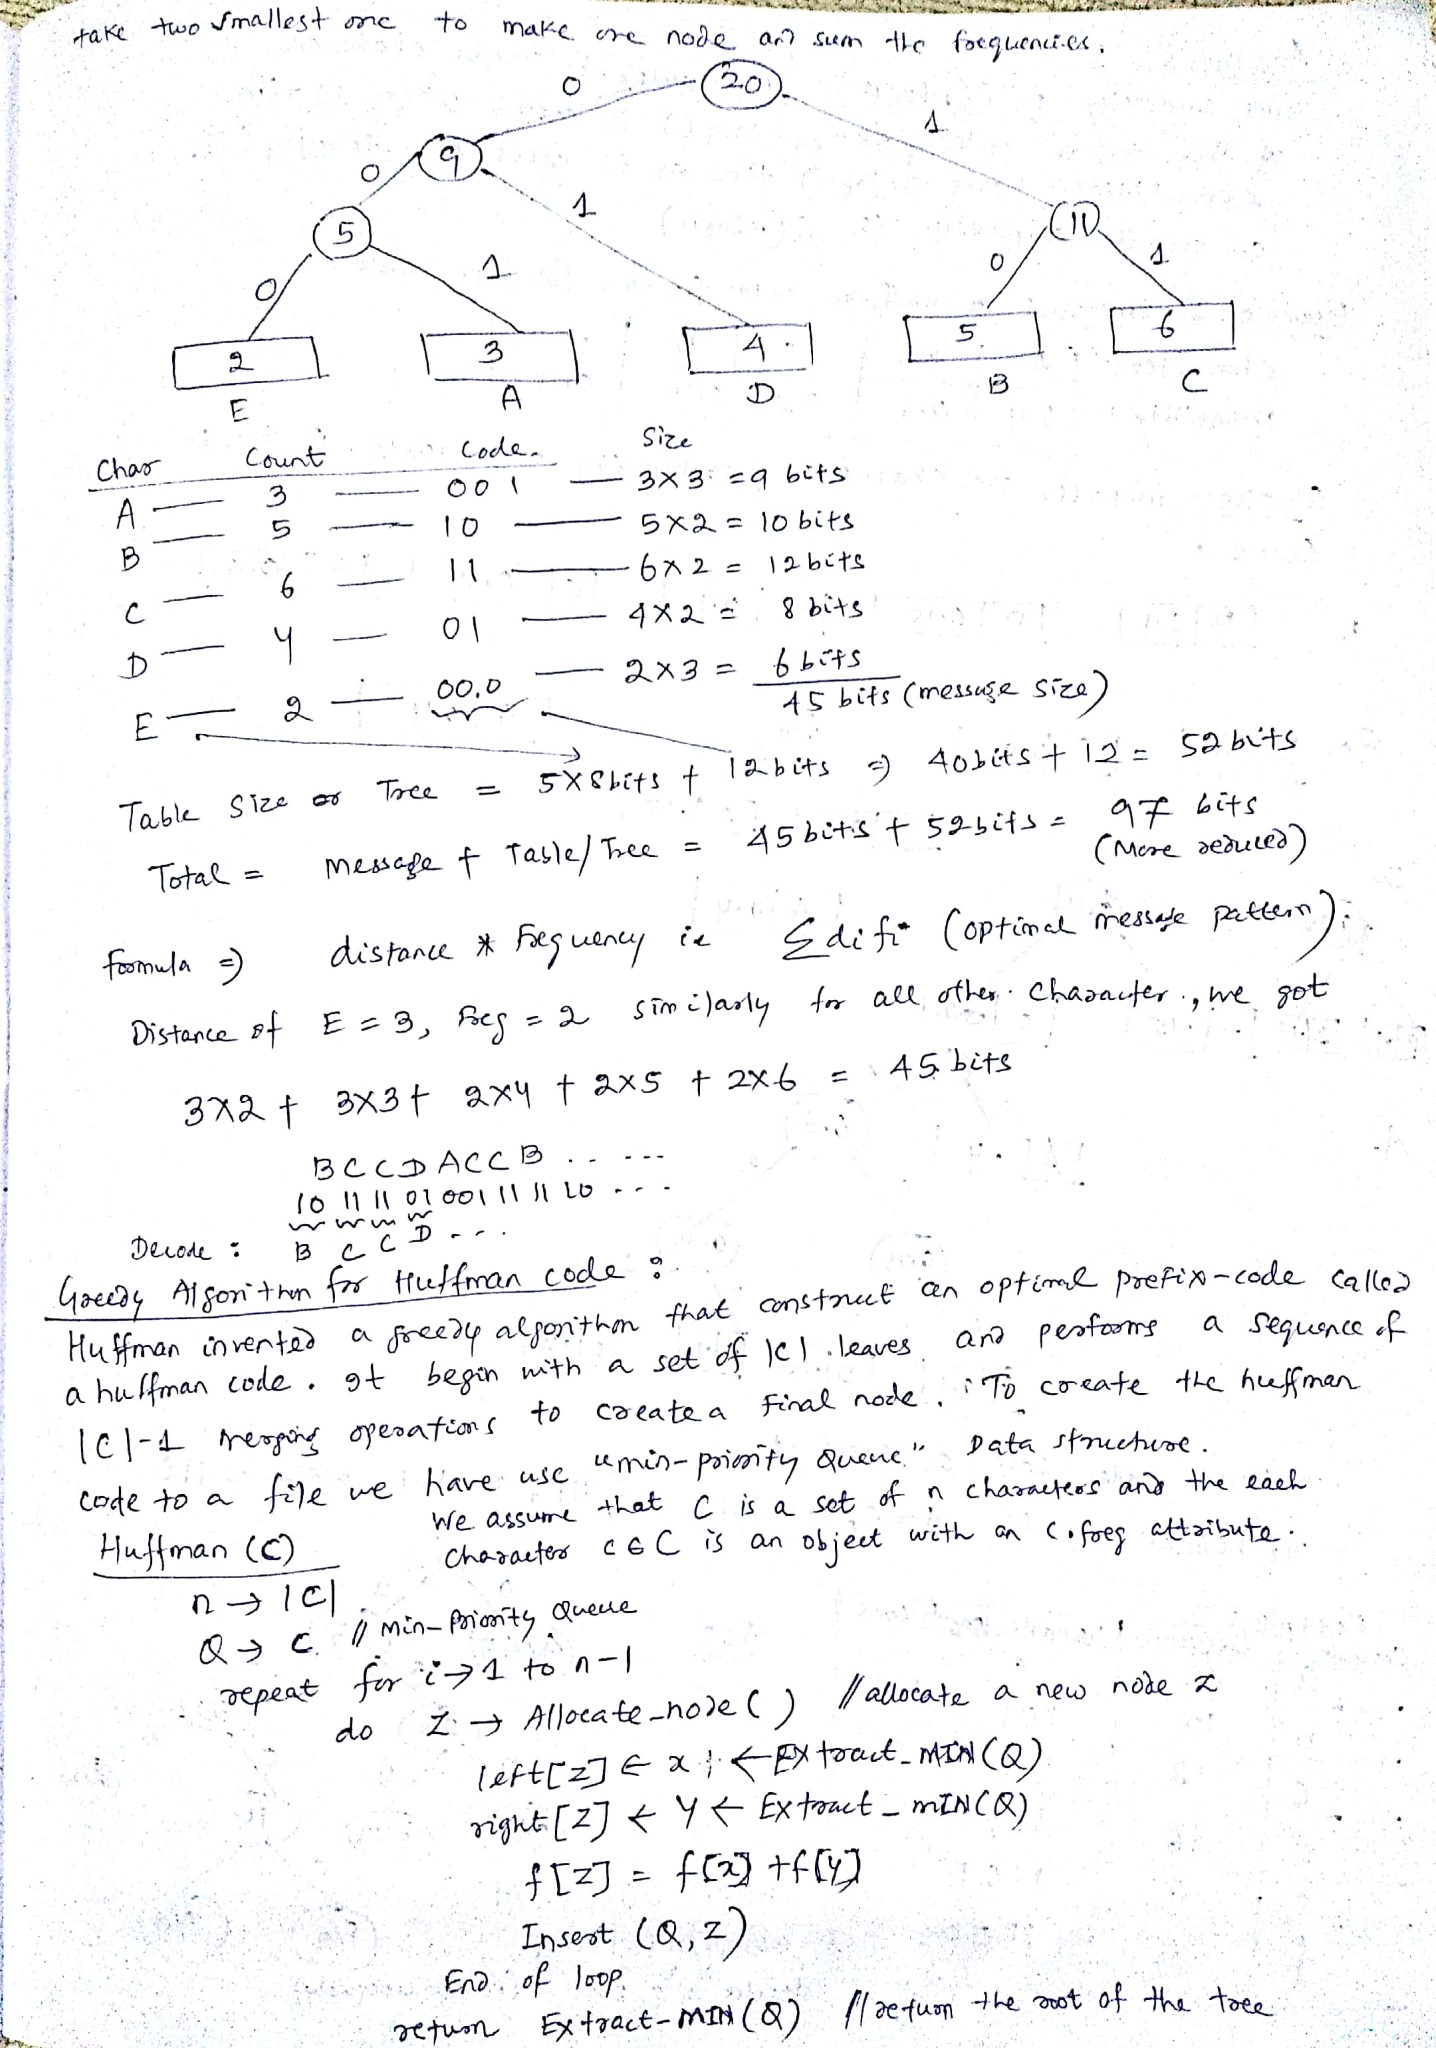 take two smallest one to make one node and sum the frequencies.
20
0
1
9
0
1
5
11
0
1
0
1
2
3
4
5
6
E
A
D
B
C
Char Count Code Size
A — 3 — 001 — 3×3 = 9 bits
B — 5 — 10 — 5×2 = 10 bits
C — 6 — 11 — 6×2 = 12 bits
D — 4 — 01 — 4×2 = 8 bits
E — 2 — 000 — 2×3 = 6 bits
45 bits (message size)
Table size or Tree = 5×8bits + 12bits ⇒ 40bits + 12 = 52 bits
Total = message + Table/Tree = 45bits + 52bits = 97 bits
(More reduced)
formula ⇒ distance * frequency ie Σdifi (optimal message pattern).
Distance of E = 3, freq = 2 similarly for all other character, we got
3×2 + 3×3 + 2×4 + 2×5 + 2×6 = 45 bits
BCCDACCB .. ---
10 11 11 01 001 11 11 10 ...
Decode : B C C D ...
Greedy Algorithm for Huffman code :
Huffman invented a greedy algorithm that construct an optimal prefix-code called
a huffman code. It begin with a set of |C| leaves and performs a sequence of
|C|-1 merging operations to create a final node. To create the huffman
code to a file we have use "min-priority Queue" Data structure.
Huffman (C)
We assume that C is a set of n characters and the each
character c ∈ C is an object with an c.freq attribute.
n → |C|
Q → C // min-Priority Queue
repeat for i → 1 to n-1
do Z → Allocate_node( ) // allocate a new node z
left[Z] ← x ← Extract_MIN(Q)
right[Z] ← y ← Extract_MIN(Q)
f[Z] = f[x] + f[y]
Insert (Q, Z)
End of loop.
return Extract-MIN(Q) // return the root of the tree